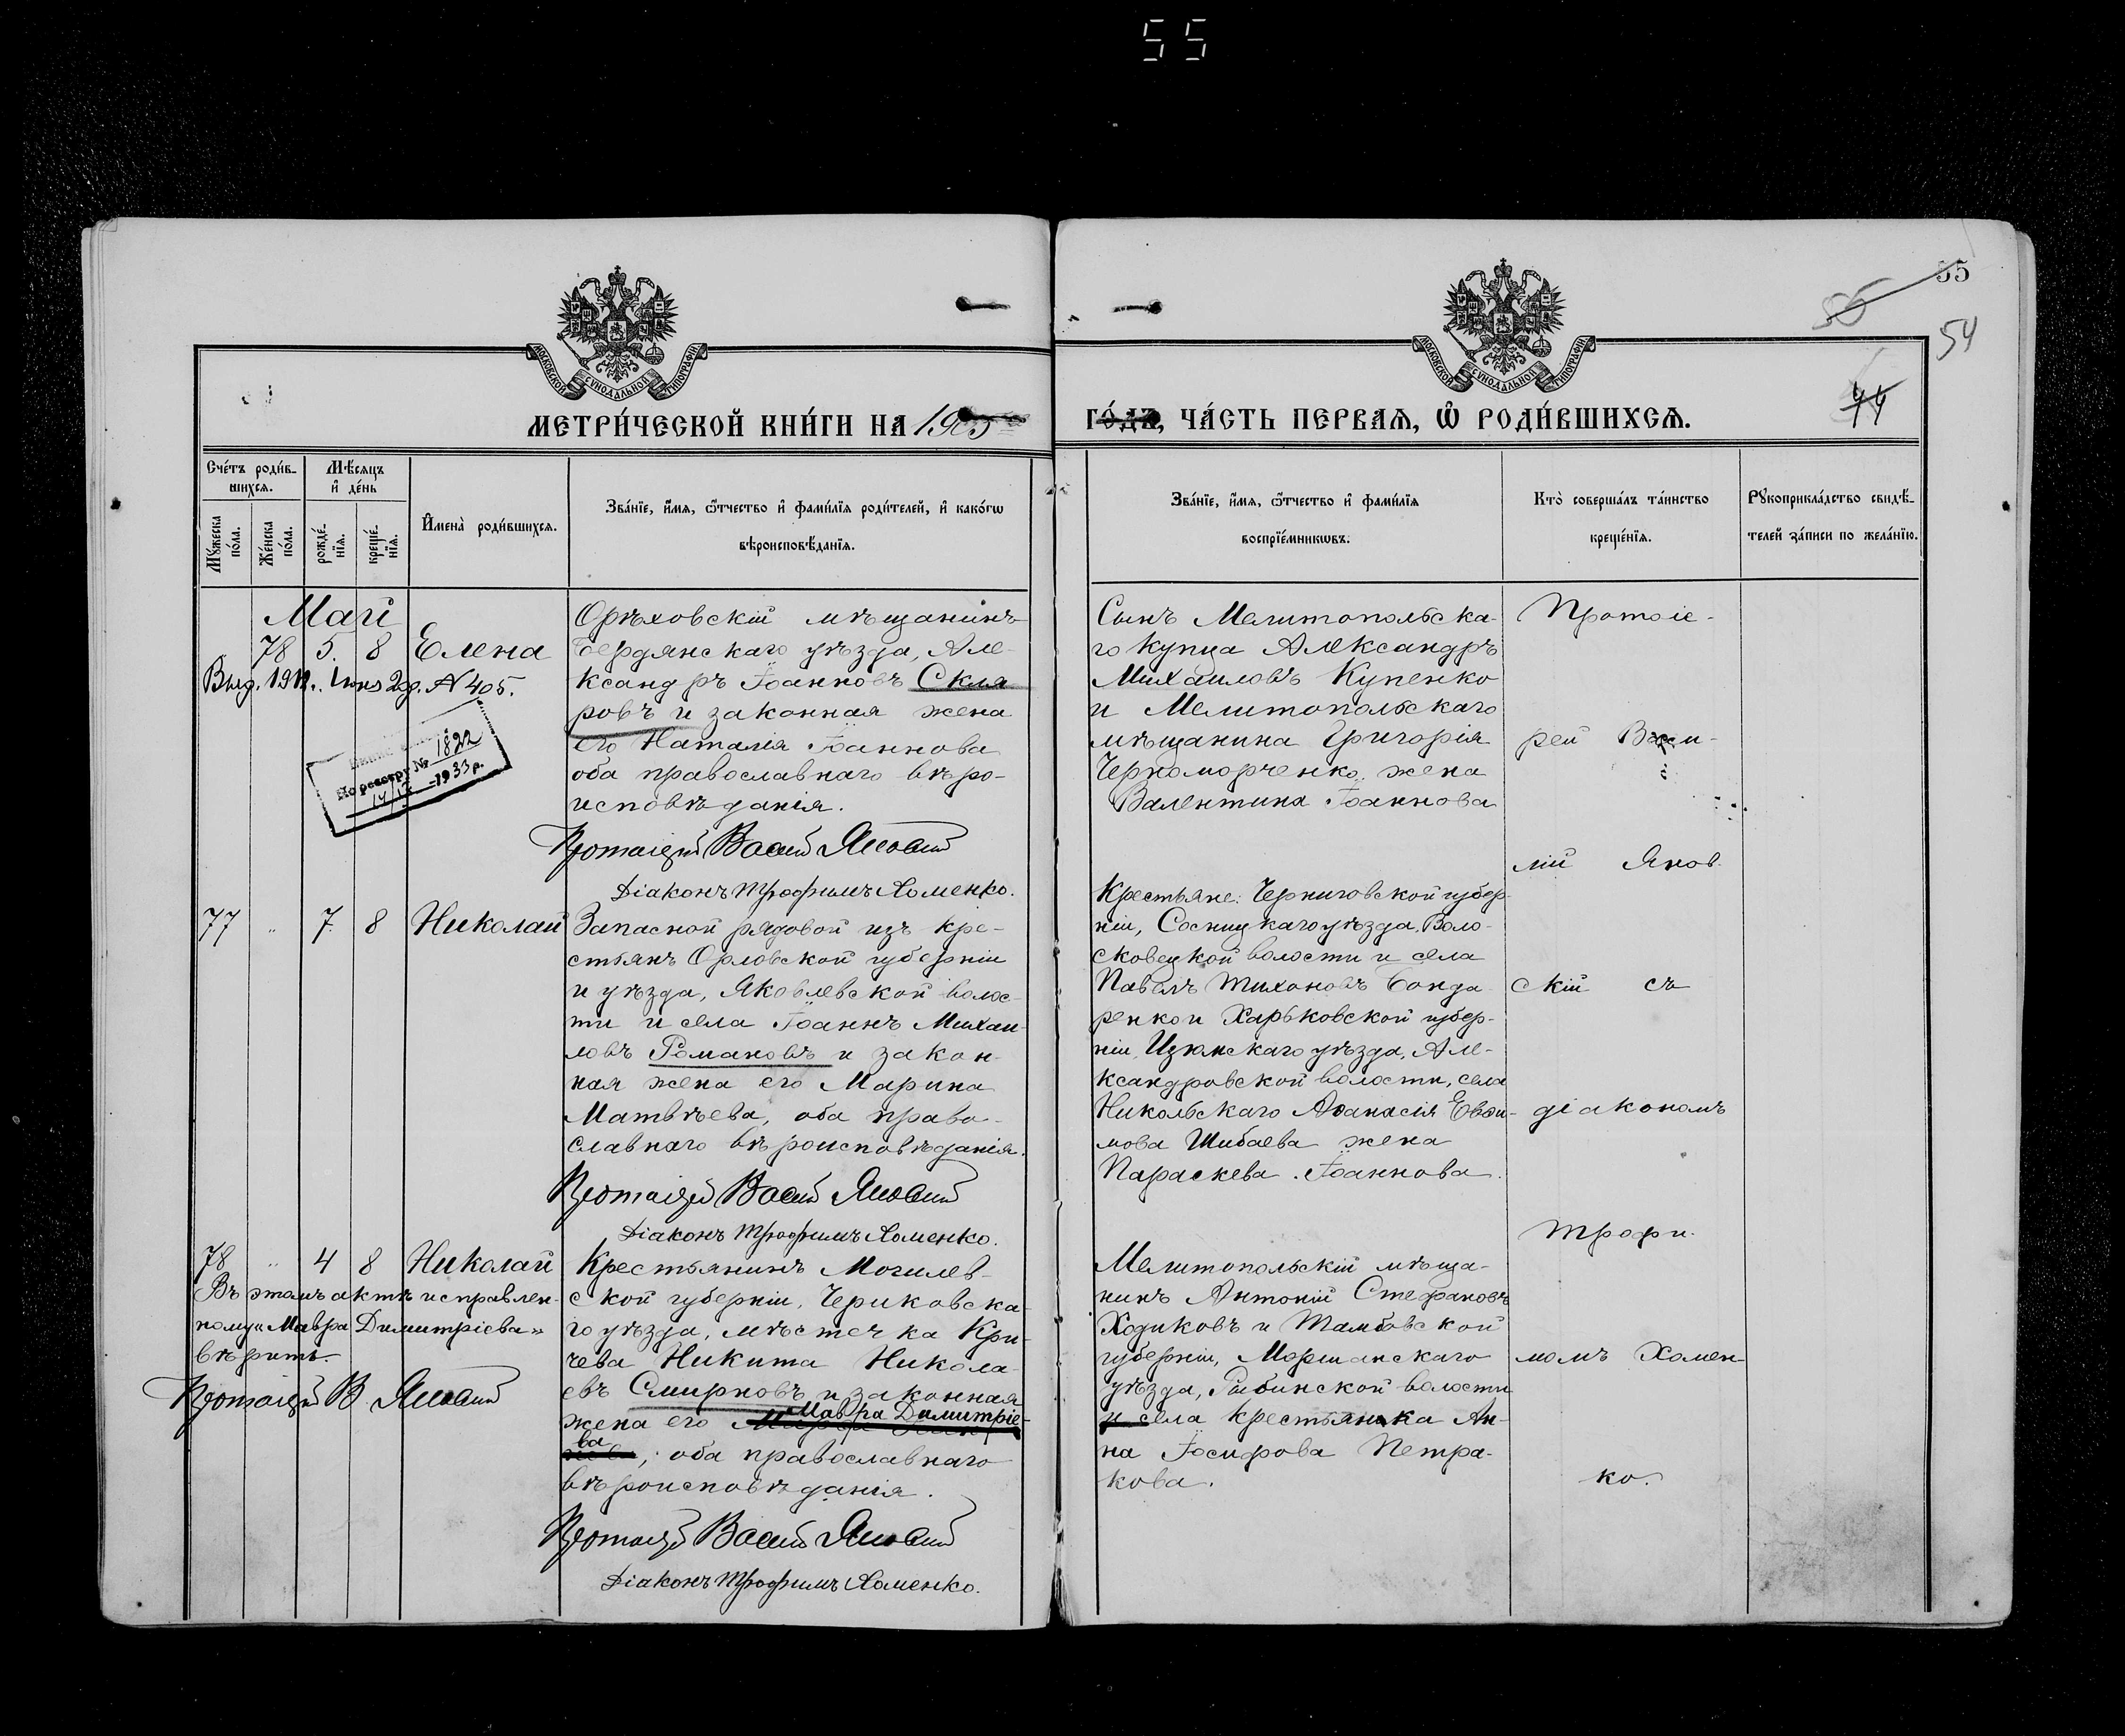 55
55
54
44
МОСКОВСКОЙ СѴНОДАЛЬНОЙ ТИПОГРАФІИ
МОСКОВСКОЙ СѴНОДАЛЬНОЙ ТИПОГРАФІИ
МЕТРИ́ЧЕСКОЙ КНИ́ГИ НА 1905
ГО́ДЪ, ЧА́СТЬ ПЕРВАѦ, Ѡ҆ РОДИ́ВШИХСѦ.
Сче́тъ роди́в-
шихсѧ.
Мѣ́сѧцъ
и҆ де́нь
Мꙋ́жеска
по́ла.
Же́нска
по́ла.
рожде́-
нїѧ.
креще́-
нїѧ.
И҆мена̀ роди́вшихсѧ.
Зва́нїе, и҆́мѧ, ѻ҆́тчество и҆ фами́лїѧ роди́телей, и҆ како́гѡ
вѣроисповѣ́данїѧ.
Зва́нїе, и҆́мѧ, ѻ҆́тчество и҆ фами́лїѧ
воспрїе́мникѡвъ.
Кто̀ соверша́лъ та́инство
креще́нїѧ.
Рꙋкоприкла́дство свидѣ́-
телей за́писи по жела́нїю.
Май
78 5. 8 Елена
Выд. 1912. Іюня 2 д. № 405.
По реестру № 1822
1933 р.
Орѣховскій мѣщанинъ
Бердянскаго уѣзда, Але-
ксандръ Іоанновъ Скля
ровъ и законная жена
его Наталія Іоаннова
оба православнаго вѣро-
исповѣданія.
Протоіерей Василій Яновскій
Діаконъ Трофимъ Хоменко.
Сынъ Мелитопольска-
го купца Александръ
Михаиловъ Купенко
и Мелитопольскаго
мѣщанина Григорія
Черноморченко жена
Валентина Іоаннова
Протоіе-
рей Васи-
лій Янов
скій съ
діакономъ
Трофи-
момъ Хомен-
ко.
77 " 7. 8 Николай
Запасной рядовой изъ кре-
стьянъ Орловской губерніи
и уѣзда, Яковлевской волос-
ти и села Іоаннъ Михаи-
ловъ Романовъ и закон-
ная жена его Марина
Матвѣева, оба право-
славнаго вѣроисповѣданія.
Протоіерей Василій Яновскій
Діаконъ Трофимъ Хоменко.
Крестьяне: Черниговской губер-
ніи, Сосницкаго уѣзда, Воло-
сковецкой волости и села
Павелъ Тихоновъ Бонда-
ренко и Харьковской губер-
ніи, Изюмскаго уѣзда, Але-
ксандровской волости, села
Никольскаго Аѳанасія Евѳи-
мова Шибаева жена
Параскева Іоаннова.
78 " 4 8 Николай
Въ этомъ актѣ исправлен-
ному „Мавра Димитріева"
вѣрить.
Протоіерей В. Яновскій
Крестьянинъ Могилев-
ской губерніи, Чериковска-
го уѣзда, мѣстечка Кри-
чева Никита Никола-
евъ Смирновъ и законная
жена его Мавра Димитріе-
ва; оба православнаго
вѣроисповѣданія.
Протоіерей Василій Яновскій
Діаконъ Трофимъ Хоменко.
Мелитопольскій мѣща-
нинъ Антоній Стефановъ
Ходиковъ и Тамбовской
губерніи, Моршанскаго
уѣзда, Рыбинской волости
и села крестьянка Ан-
на Іосифова Петра-
кова.